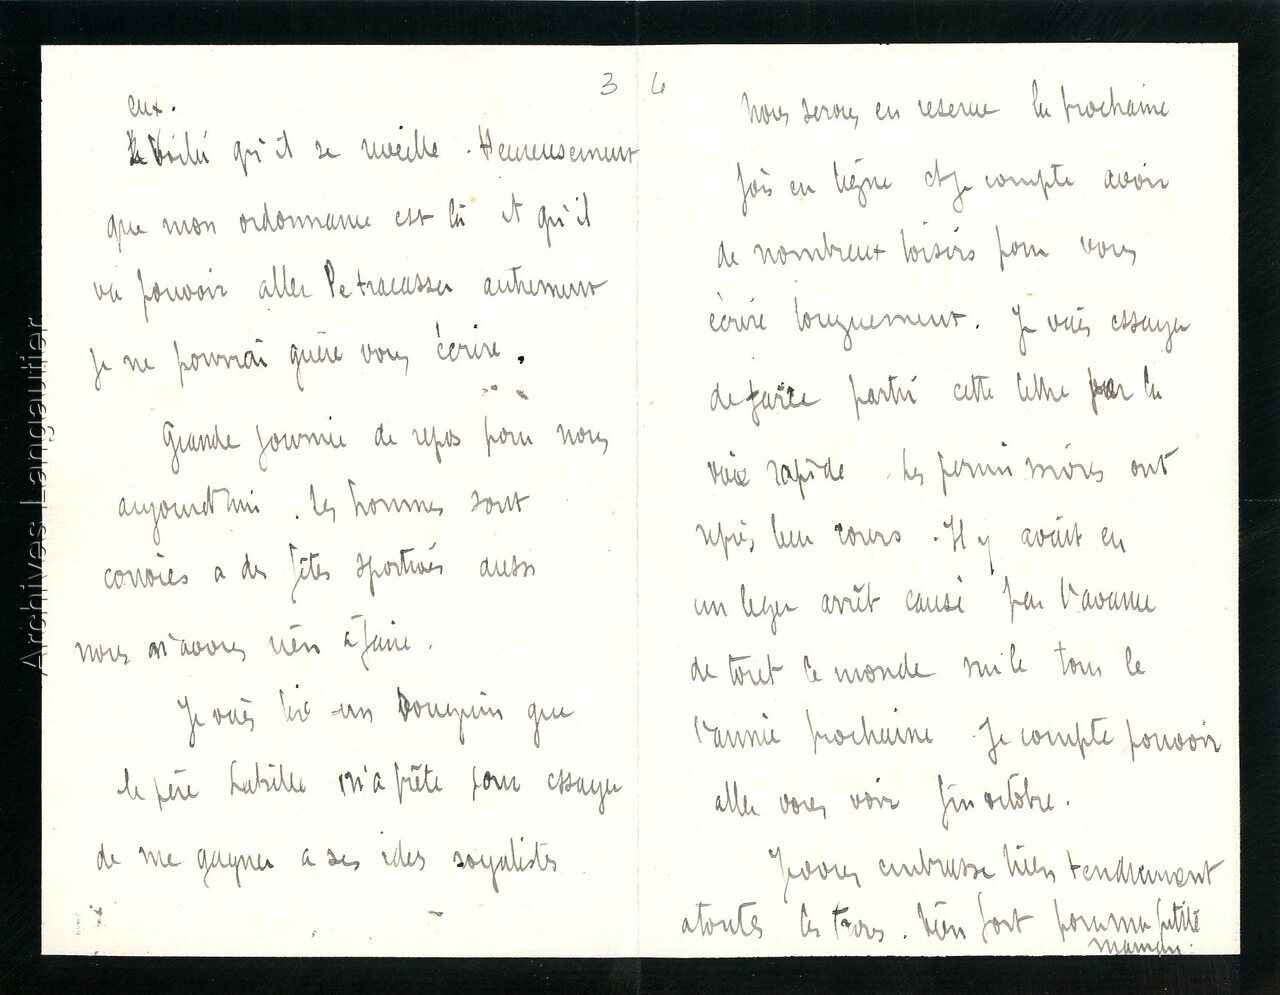 3
eux.
Le Voilà qu'il se reveille. Heureusement
que mon ordonnance est là et qu'il
va pouvoir aller le tracasser autrement
je ne pourrai guère vous écrire.
Grande journée de repos pour nous
aujourd'hui. Les hommes sont
conviés a des fêtes sportives aussi
nous n'avons rien à faire.
Je vais lire un bouquin que
le père Labille m'a prêté pour essayer
de me gagner a ses idées royalistes
4
Nous serons en reserve la prochaine
fois en ligne et je compte avoir
de nombreux loisirs pour vous
écrire longuement. Je vais essayer
de faire partir cette lettre par la
voie rapide. Les permissions ont
repris leur cours. Il y avait eu
un leger arrêt causé par l'avance
de tout le monde sur le tour de
l'année prochaine. Je compte pouvoir
aller vous voir fin octobre.
Je vous embrasse bien tendrement
a toutes les trois. bien fort pour ma petite
maman.
Archives Langautier